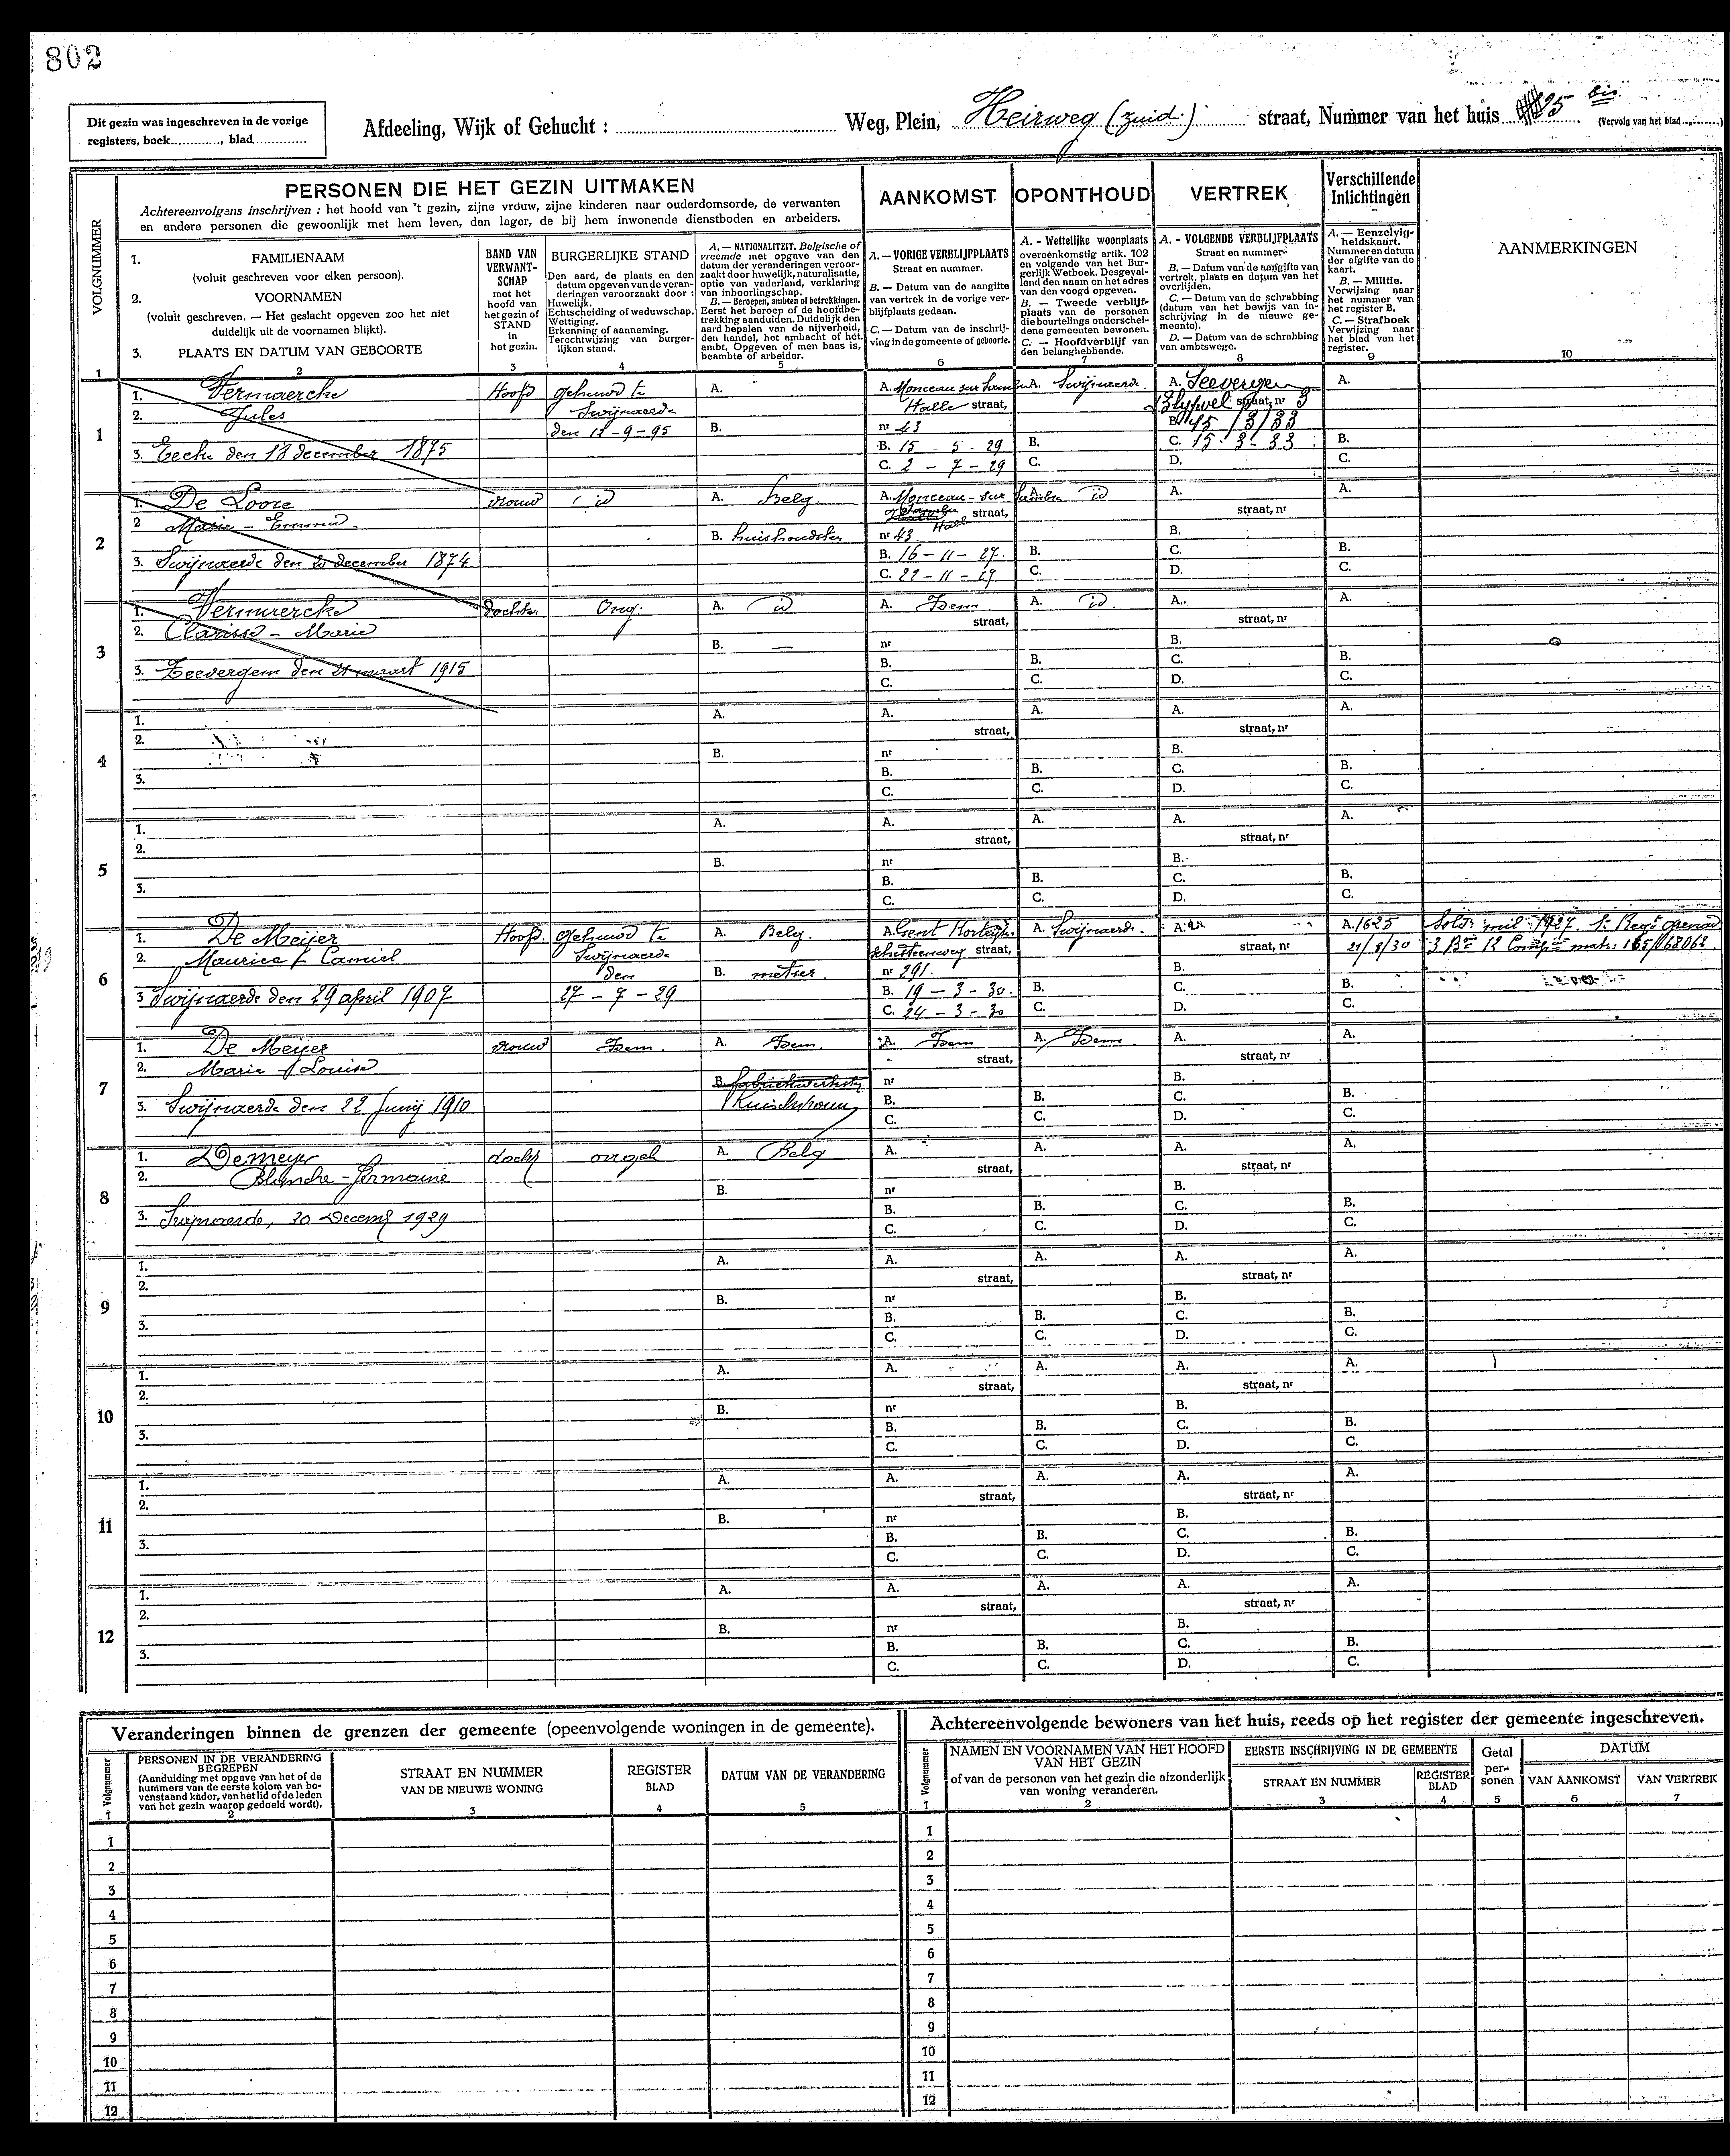 802
Dit gezin was ingeschreven in de vorige
registers, boek............, blad..............
Afdeeling, Wijk of Gehucht : .......... Weg, Plein, Heirweg (zuid.) straat, Nummer van het huis 25 bis
(Vervolg van het blad ........)
VOLGNUMMER
PERSONEN DIE HET GEZIN UITMAKEN
Achtereenvolgans inschrijven : het hoofd van 't gezin, zijne vrduw, zijne kinderen naar ouderdomsorde, de verwanten
en andere personen die gewoonlijk met hem leven, dan lager, de bij hem inwonende dienstboden en arbeiders.
1. FAMILIENAAM
(voluit geschreven voor elken persoon).
2. VOORNAMEN
(voluit geschreven. — Het geslacht opgeven zoo het niet
duidelijk uit de voornamen blijkt).
3. PLAATS EN DATUM VAN GEBOORTE
BAND VAN
VERWANT-
SCHAP
met het
hoofd van
het gezin of
STAND
in
het gezin.
BURGERLIJKE STAND
Den aard, de plaats en den
datum opgeven van de veran-
deringen veroorzaakt door :
Huwelijk.
Echtscheiding of weduwschap.
Wettiging.
Erkenning of aanneming.
Terechtwijzing van burger-
lijken stand.
A. — NATIONALITEIT. Belgische of
vreemde met opgave van den
datum der veranderingen veroor-
zaakt door huwelijk, naturalisatie,
optie van vaderland, verklaring
van inboorlingschap.
B. — Beroepen, ambten of betrekkingen.
Eerst het beroep of de hoofdbe-
trekking aanduiden. Duidelijk den
aard bepalen van de nijverheid,
den handel, het ambacht of het
ambt. Opgeven of men baas is,
beambte of arbeider.
AANKOMST
A. — VORIGE VERBLIJFPLAATS
Straat en nummer.
B. — Datum van de aangifte
van vertrek in de vorige ver-
blijfplaats gedaan.
C. — Datum van de inschrij-
ving in de gemeente of geboorte.
OPONTHOUD
A. - Wettelijke woonplaats
overeenkomstig artik. 102
en volgende van het Bur-
gerlijk Wetboek. Desgeval-
lend den naam en het adres
van den voogd opgeven.
B. — Tweede verblijf-
plaats van de personen
die beurtelings onderschei-
dene gemeenten bewonen.
C. — Hoofdverblijf van
den belanghebbende.
VERTREK
A. - VOLGENDE VERBLIJFPLAATS
Straat en nummer.
B. — Datum van de aangifte van
vertrek, plaats en datum van het
overlijden.
C. — Datum van de schrabbing
(datum van het bewijs van in-
schrijving in de nieuwe ge-
meente).
D. — Datum van de schrabbing
van ambtswege.
Verschillende
Inlichtingen
A. — Eenzelvig-
heidskaart.
Nummer en datum
der afgifte van de
kaart.
B. — Militie.
Verwijzing naar
het nummer van
het register B.
C. — Strafboek
Verwijzing naar
het blad van het
register.
AANMERKINGEN
1 2 3 4 5 6 7 8 9 10
1
1. Vermaercke Hoofd gehuwd te A. A. Monceau sur Sambre A. Swijnaerde. A. Seevergem A.
2. Jules Swijnaerde Halle straat, straat, nr 3
den 12-9-95 B. nr 43 B. 15/3/33
3. Eecke den 18 december 1875 B. 15 - 5 - 29 B. C. 15-3-33 B.
C. 2 - 7 - 29 C. D. C.
2
1. De Loore vrouw id A. Belg. A. Monceau-sur Sambre A. id A. A.
2 Marie - Emma straat, straat, nr
B. huishoudster nr 43. B.
3. Swijnaerde den 20 december 1874 B. 16-11-27. B. C. B.
C. 22-11-27 C. D. C.
3
1. Vermaercke dochter Ong. A. id A. Idem A. id. A. A.
2. Clarisse - Marie straat, straat, nr
B. — nr B.
3. Zeevergem den 21 maart 1915 B. B. C. B.
C. C. D. C.
4
1. A. A. A. A. A.
2. straat, straat, nr
B. nr B.
3. B. B. C. B.
C. C. D. C.
5
1. A. A. A. A. A.
2. straat, straat, nr
B. nr B.
3. B. B. C. B.
C. C. D. C.
6
1. De Meijer Hoofd. gehuwd te A. Belg. A. Gent A. Swijnaerde. A. A. 1625 mil. 1927
2. Maurice Camiel Swijnaerde straat, straat, nr 21/8/30
den B. metser nr 291. B.
3 Swijnaerde den 29 april 1907 27 - 7 - 29 B. 19 - 3 - 30. B. C. B.
C. 24 - 3 - 30 C. D. C.
7
1. De Meijer vrouw Idem. A. Idem. A. Idem A. Idem A. A.
2. Marie Louise straat, straat, nr
B. fabriekwerkster nr B.
3. Swijnaerde den 22 Junij 1910 Huishoud B. B. C. B.
C. C. D. C.
8
1. Demeyer docht ongeh A. Belg A. A. A. A.
2. Blanche - Germaine straat, straat, nr
B. nr B.
3. Swijnaerde, 30 Decemb 1929 B. B. C. B.
C. C. D. C.
9
1. A. A. A. A. A.
2. straat, straat, nr
B. nr B.
3. B. B. C. B.
C. C. D. C.
10
1. A. A. A. A. A.
2. straat, straat, nr
B. nr B.
3. B. B. C. B.
C. C. D. C.
11
1. A. A. A. A. A.
2. straat, straat, nr
B. nr B.
3. B. B. C. B.
C. C. D. C.
12
1. A. A. A. A. A.
2. straat, straat, nr
B. nr B.
3. B. B. C. B.
C. C. D. C.
Veranderingen binnen de grenzen der gemeente (opeenvolgende woningen in de gemeente).
Volgnummer
PERSONEN IN DE VERANDERING
BEGREPEN
(Aanduiding met opgave van het of de
nummers van de eerste kolom van bo-
venstaand kader, van het lid of de leden
van het gezin waarop gedoeld wordt).
STRAAT EN NUMMER
VAN DE NIEUWE WONING
REGISTER
BLAD
DATUM VAN DE VERANDERING
1 2 3 4 5
1
2
3
4
5
6
7
8
9
10
11
12
Achtereenvolgende bewoners van het huis, reeds op het register der gemeente ingeschreven.
Volgnummer
NAMEN EN VOORNAMEN VAN HET HOOFD
VAN HET GEZIN
of van de personen van het gezin die afzonderlijk
van woning veranderen.
EERSTE INSCHRIJVING IN DE GEMEENTE
STRAAT EN NUMMER
REGISTER
BLAD
Getal
per-
sonen
DATUM
VAN AANKOMST
VAN VERTREK
1 2 3 4 5 6 7
1
2
3
4
5
6
7
8
9
10
11
12